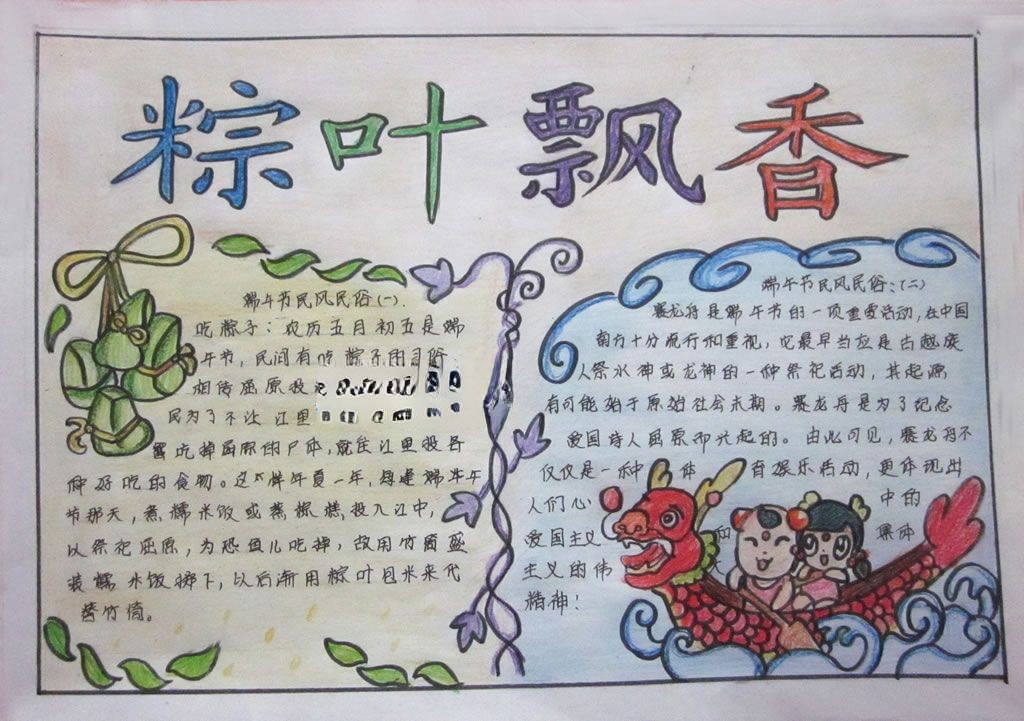 粽叶飘香
端午节民风民俗(一).
吃粽子：农历五月初五是端
午节，民间有吃粽子的习俗
相传屈原投
民为了不让江里
吃掉屈原的尸体，就往江里投各
种好吃的食物。这样年复一年，每逢端午
节那天，煮糯米饭或蒸粽糕投入江中，
以祭祀屈原，为恐鱼儿吃掉，故用竹筒盛
装糯米饭掷下，以后渐用粽叶包米来代
替竹筒。
端午节民风民俗：(二)
赛龙舟是端午节的一项重要活动，在中国
南方十分流行和重视，它最早当应是古越族
人祭水神或龙神的一种祭祀活动，其起源
有可能始于原始社会末期。赛龙舟是为了纪念
爱国诗人屈原而兴起的。由此可见，赛龙舟不
仅仅是一种 体 育娱乐活动，更体现出
人们心 中的
爱国主义 和 集体
主义的伟
精神！